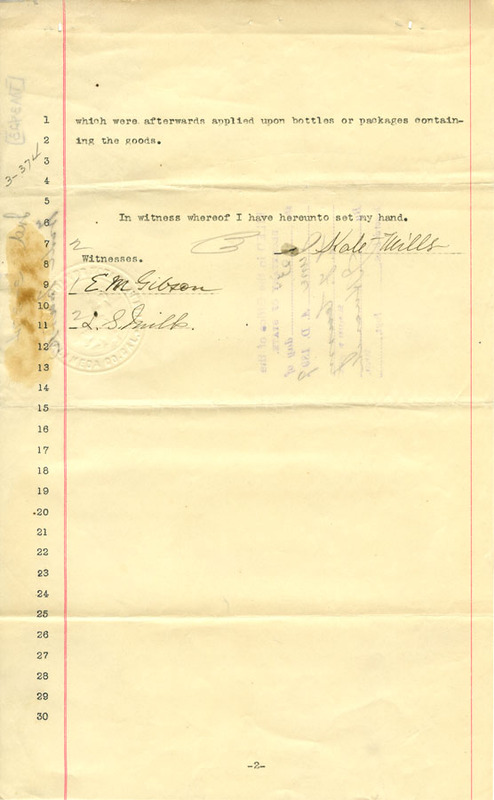 1 which were afterwards applied upon bottles or packages contain-
2 ing the goods.
3
3-374
4
5
6 In witness whereof I have hereunto set my hand.
7 Kate Mills
8 Witnesses.
9 1 E. M. Gibson
10
11 2 L. S. Mills.
12
13
14
15
16
17
18
19
20
21
22
23
24
25
26
27
28
29
30
-2-